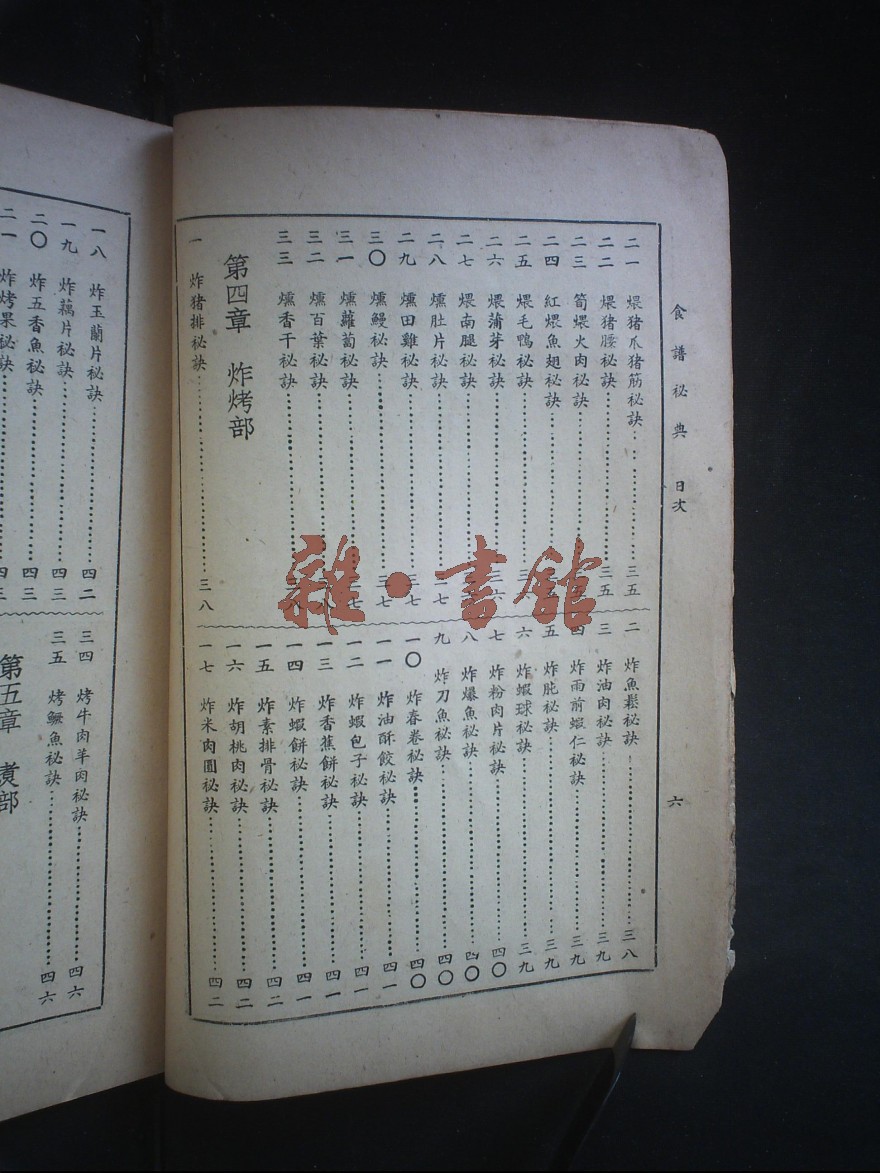 食譜秘典 目次
六
二一 煨猪爪猪筋秘訣 三五
二二 煨猪腰秘訣 三五
二三 筍煨火肉秘訣
二四 紅煨魚翅秘訣
二五 煨毛鴨秘訣
二六 煨蒲芽秘訣 三六
二七 煨南腿秘訣
二八 燻肚片秘訣
二九 燻田雞秘訣 三七
三〇 燻鰻秘訣 三七
三一 燻蘿蔔秘訣
三二 燻百葉秘訣
三三 燻香干秘訣
第四章 炸烤部
一 炸猪排秘訣 三八
二 炸魚鬆秘訣 三八
三 炸油肉秘訣 三九
四 炸雨前蝦仁秘訣 三九
五 炸肫秘訣 三九
六 炸蝦球秘訣 三九
七 炸粉肉片秘訣 四〇
八 炸爆魚秘訣 四〇
九 炸刀魚秘訣 四〇
一〇 炸春卷秘訣 四〇
一一 炸油酥餃秘訣 四一
一二 炸蝦包子秘訣 四一
一三 炸香蕉餅秘訣 四一
一四 炸蝦餅秘訣 四一
一五 炸素排骨秘訣 四二
一六 炸胡桃肉秘訣 四二
一七 炸米肉圓秘訣 四二
一八 炸玉蘭片秘訣 四二
一九 炸藕片秘訣 四三
二〇 炸五香魚秘訣 四三
二一 炸烤果秘訣 四三
三四 烤牛肉羊肉秘訣 四六
三五 烤鳜魚秘訣 四六
第五章 煑部
雜·書館